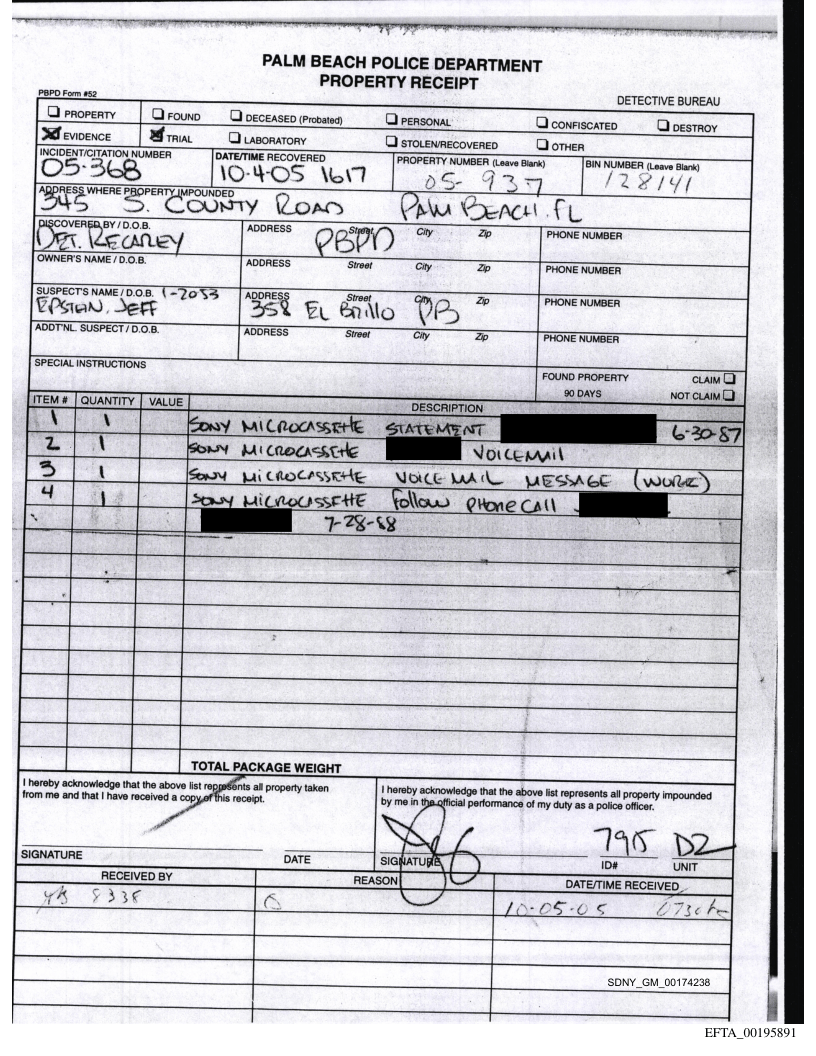 PALM BEACH POLICE DEPARTMENT
PROPERTY RECEIPT
PBPD Form #52
DETECTIVE BUREAU
PROPERTY FOUND DECEASED (Probated) PERSONAL CONFISCATED DESTROY
EVIDENCE TRIAL LABORATORY STOLEN/RECOVERED OTHER
INCIDENT/CITATION NUMBER DATE/TIME RECOVERED PROPERTY NUMBER (Leave Blank) BIN NUMBER (Leave Blank)
05-368 10-4-05 1617 05-937 128141
ADDRESS WHERE PROPERTY IMPOUNDED
345 S. COUNTY ROAD PALM BEACH, FL
DISCOVERED BY / D.O.B. ADDRESS Street City Zip PHONE NUMBER
DET. RECAREY PBPD
OWNER'S NAME / D.O.B. ADDRESS Street City Zip PHONE NUMBER
SUSPECT'S NAME / D.O.B. 1-2053 ADDRESS Street City Zip PHONE NUMBER
EPSTIAN, JEFF 358 EL Brillo PB
ADDT'NL. SUSPECT / D.O.B. ADDRESS Street City Zip PHONE NUMBER
SPECIAL INSTRUCTIONS
FOUND PROPERTY CLAIM
90 DAYS NOT CLAIM
ITEM # QUANTITY VALUE DESCRIPTION
1 1 SONY MICROCASSETTE STATEMENT 6-30-87
2 1 SONY MICROCASSETTE VOICEMAIL
3 1 SONY MICROCASSETTE VOICE MAIL MESSAGE (WORK)
4 1 SONY MICROCASSETTE Follow PHONE CALL
7-28-88
TOTAL PACKAGE WEIGHT
I hereby acknowledge that the above list represents all property taken
from me and that I have received a copy of this receipt.
I hereby acknowledge that the above list represents all property impounded
by me in the official performance of my duty as a police officer.
D2
SIGNATURE DATE SIGNATURE ID# UNIT
RECEIVED BY REASON DATE/TIME RECEIVED
8338 10-05-05
SDNY_GM_00174238
EFTA_00195891